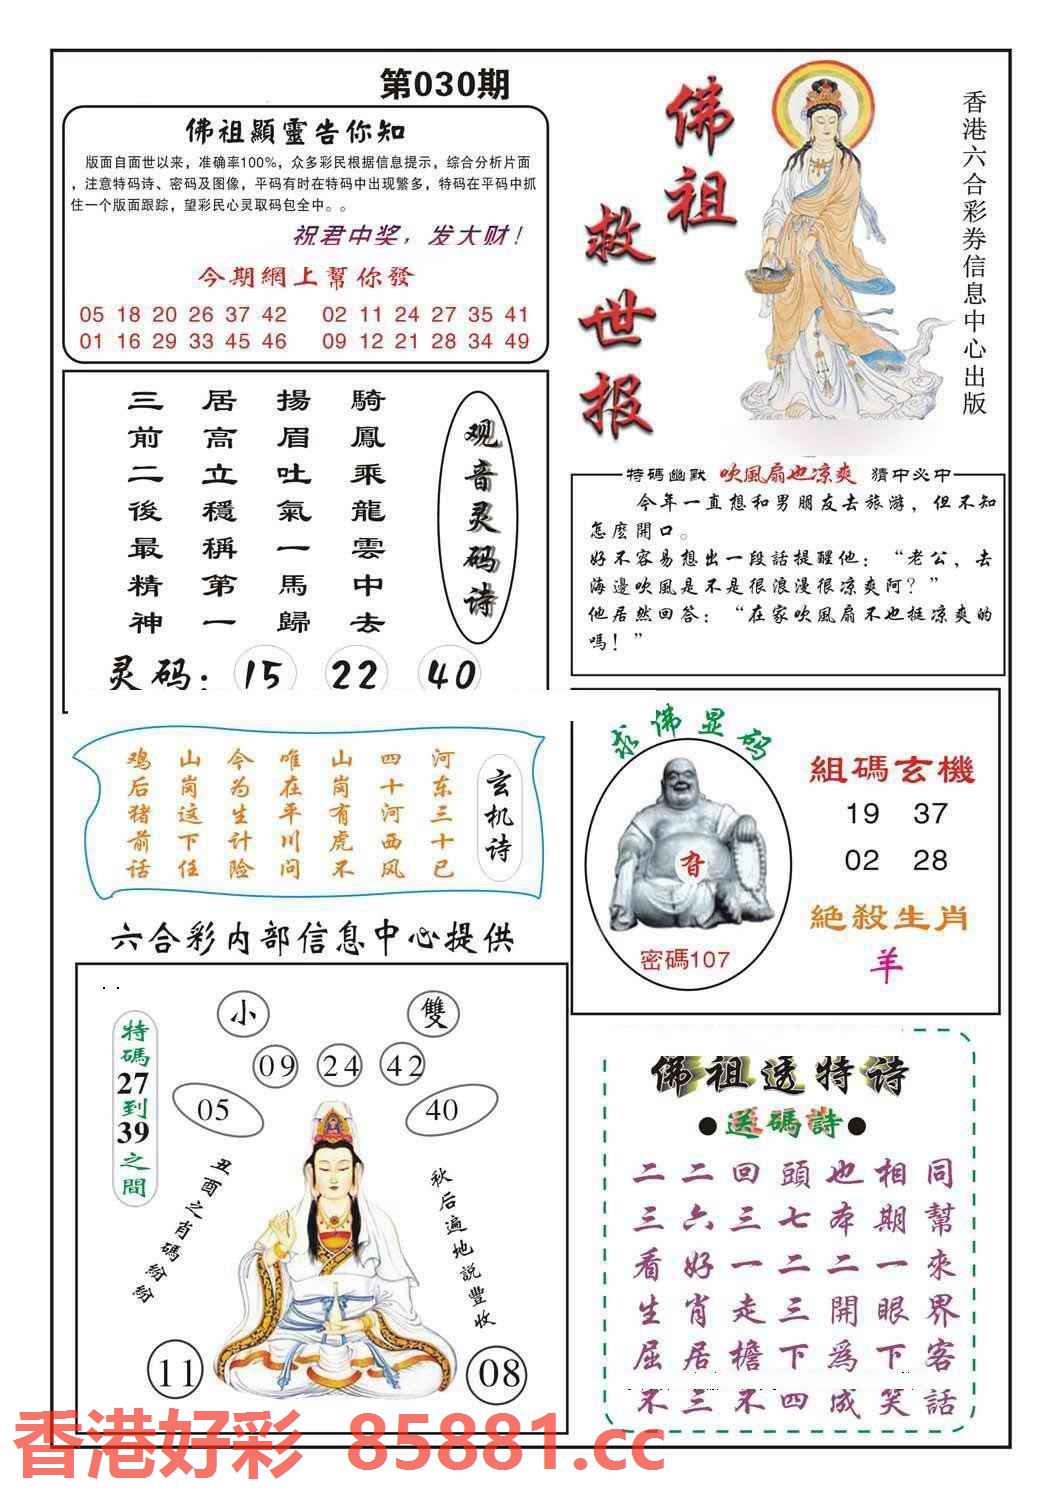 第030期
佛祖顯靈告你知
版面自面世以来，准确率100%，众多彩民根据信息提示，综合分析片面
，注意特码诗、密码及图像，平码有时在特码中出现繁多，特码在平码中抓
住一个版面跟踪，望彩民心灵取码包全中。。
祝君中奖，发大财！
今期網上幫你發
05 18 20 26 37 42 02 11 24 27 35 41
01 16 29 33 45 46 09 12 21 28 34 49
佛祖
救世报
香港六合彩券信息中心出版
观音灵码诗
騎鳳乘龍雲中去
揚眉吐氣一馬歸
居高立穩稱第一
三前二後最精神
灵码：15 22 40
特碼幽默 吹風扇也凉爽 猜中必中
今年一直想和男朋友去旅游，但不知
怎麽開口。
好不容易想出一段話提醒他：“老公，去
海邊吹風是不是很浪漫很凉爽阿？”
他居然回答：“在家吹風扇不也挺凉爽的
嗎！”
玄机诗
河东三十已
四十河西风
山岗有虎不
唯在平川问
今为生计险
山岗这下任
鸡后猪前话
求佛显码
密碼107
組碼玄機
19 37
02 28
絕殺生肖
羊
六合彩内部信息中心提供
特碼27到39之間
小 雙
09 24 42
05 40
丑酉之肖碼紛紛
秋后遍地説豐收
11 08
佛祖透特诗
●送碼詩●
二二回頭也相同
三六三七本期幫
看好一二二一來
生肖走三開眼界
屈居檐下爲下客
不三不四成笑話
香港好彩 85881.cc